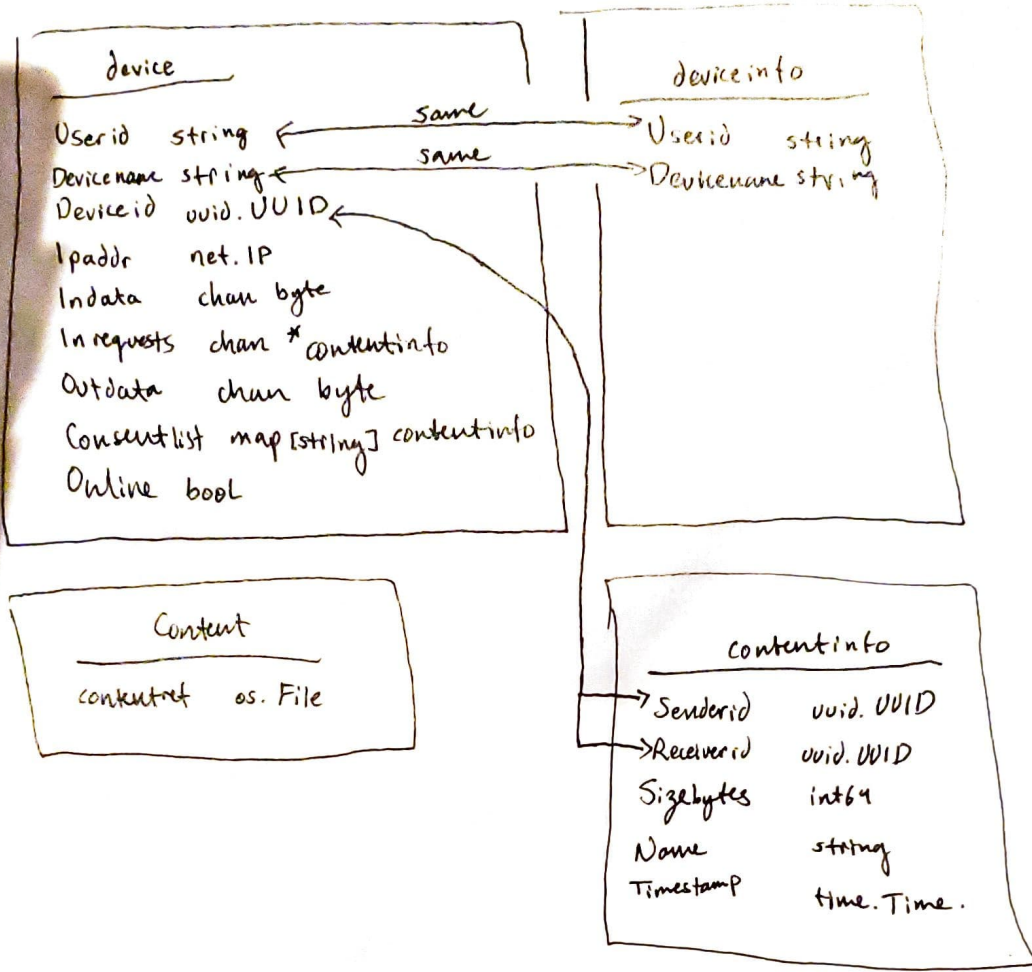 device
Userid string
Devicename string
Deviceid uuid.UUID
Ipaddr net.IP
Indata chan byte
Inrequests chan *contentinfo
Outdata chan byte
Consentlist map[string] contentinfo
Online bool
same
same
deviceinfo
Userid string
Devicename string
Content
contentref os.File
contentinfo
Senderid uuid.UUID
Receiverid uuid.UUID
Sizebytes int64
Name string
Timestamp time.Time.